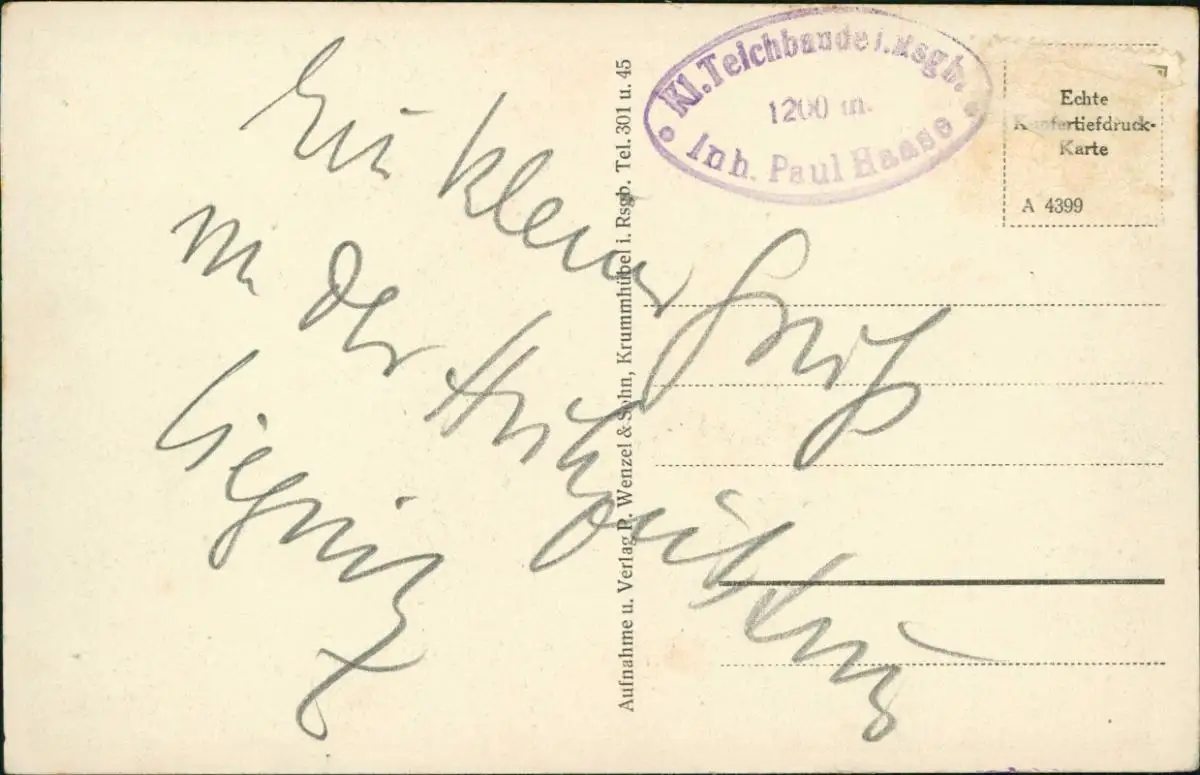 Ein kleiner Gruß
in der
Liegnitz
Aufnahme u. Verlag P. Wenzel & Sohn, Krummhübel i. Rsgb. Tel. 301 u. 45
Kl. Teichbaude i. Rsgb.
1200 m.
Inh. Paul Haase
Echte
Kupfertiefdruck-
Karte
A 4399